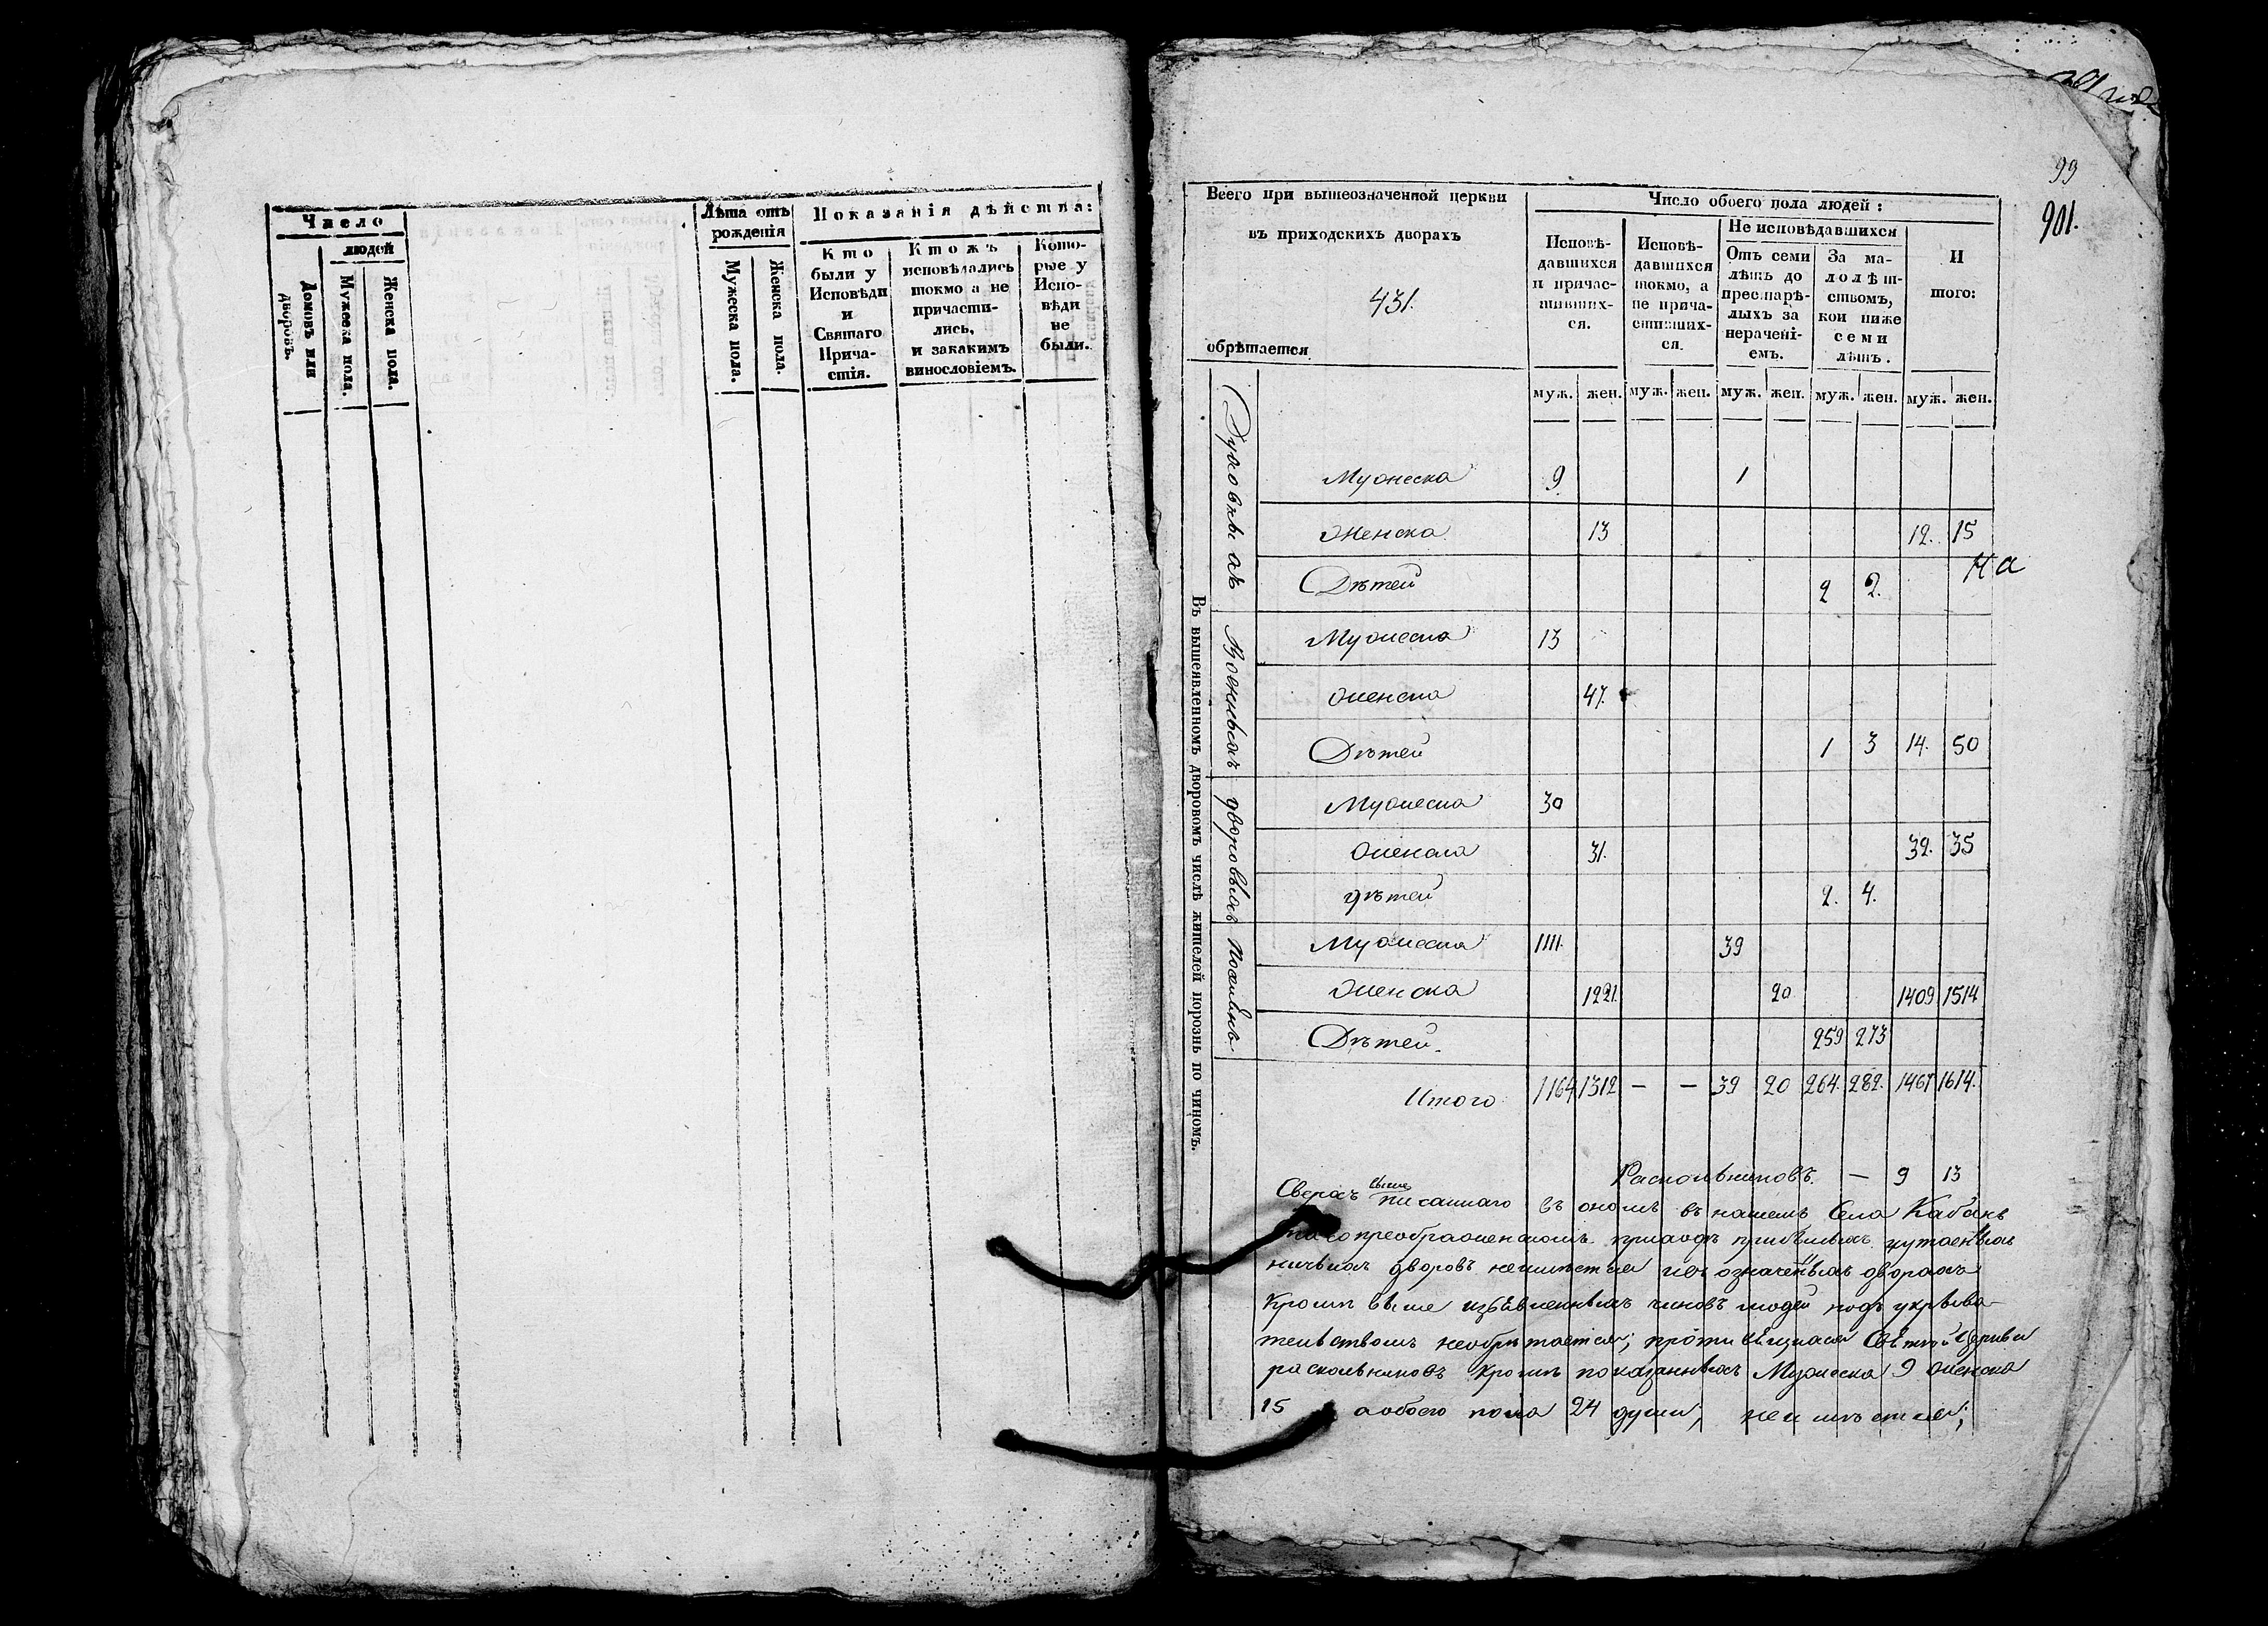 Число
людей
Домовъ или дворовъ.
Мужеска пола.
Женска пола.
Лѣта отъ рожденія
Мужеска пола.
Женска пола.
Показанія дѣйства:
Кто были у Исповѣди и Святаго Причастія.
Кто жъ исповѣдались токмо а не причастились, и закакимъ винословіемъ.
Которые у Исповѣди не были.
99
901.
Всего при вышеозначенной церкви
въ приходскихъ дворахъ
431.
обрѣтается
Число обоего пола людей:
Исповѣ-
давшихся
и причас-
тивших-
ся.
Исповѣ-
давшихся
токмо, а
не прича-
стивших-
ся.
Не исповѣдавшихся
Отъ семи
лѣтъ до
престарѣ-
лыхъ за
нерачені-
емъ.
За ма-
лолѣт-
ствомъ,
кои ниже
семи
лѣтъ.
И
того:
муж. жен. муж. жен. муж. жен. муж. жен. муж. жен.
Въ вышеявленномъ дворовомъ числѣ жителей порознь по чиномъ.
Духовныхъ
Мужеска 9 1
Женска 13 12. 15
Дѣтей 2 2.
на
Военныхъ
Мужеска 13
женска 47.
Дѣтей 1 3 14. 50
дворовыхъ
Мужеска 30
женска 31. 32. 35
дѣтей 2. 4.
Поселянъ
Мужеска 1111. 39
женска 1221. 20 1409 1514
Дѣтей. 259 273
Итого 1164 1312 — — 39 20 264. 282. 1467 1614.
Раскольниковъ. — 9 13
Сверхъ выше писаннаго въ ономъ въ нашемъ Села Кабакъ
приходѣ прибылыхъ утаенныхъ
дворовъ неимѣется и въ означенныхъ дворахъ
Кромѣ выше изъявленныхъ чиновъ людей подъ укрыва-
тельствомъ необрѣтается; Святой Церкви
раскольниковъ кромѣ показанныхъ Мужеска 9 женска
15 а обоего пола 24 души, неимѣется;